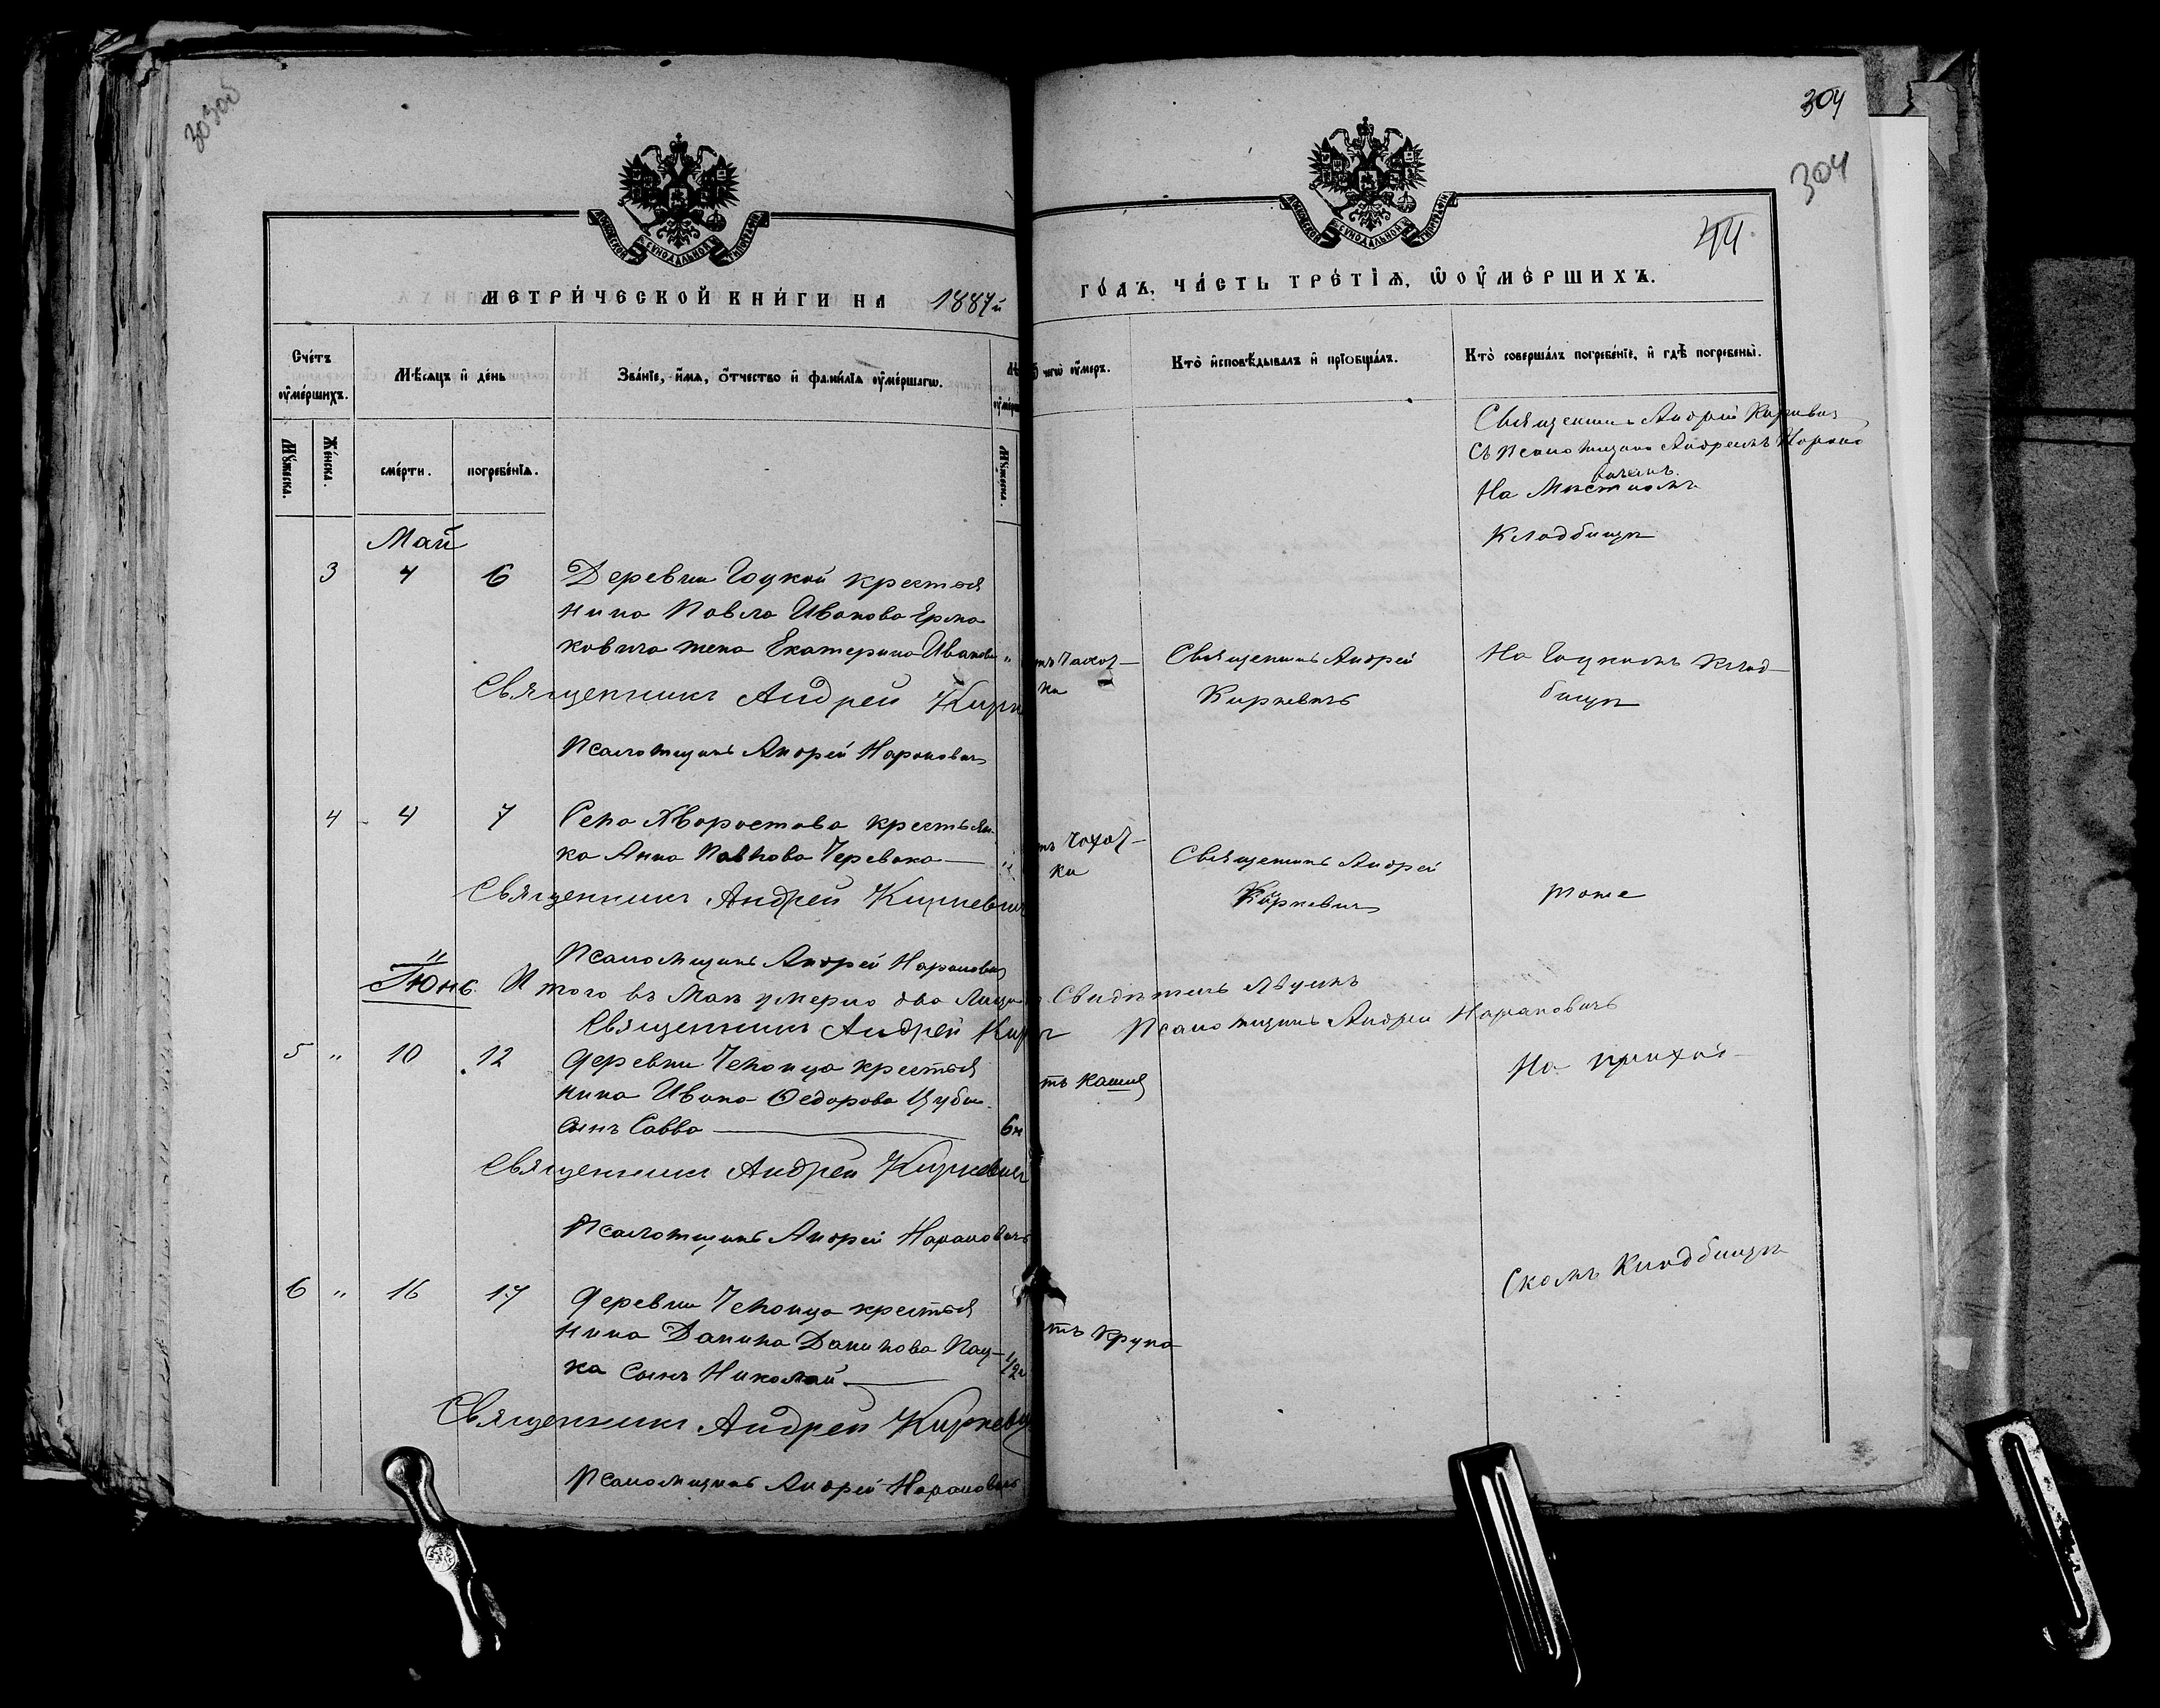 304
304
44
МОСКОВСКОЙ СѴНОДАЛЬНОЙ ТИПОГРАФІИ
МОСКОВСКОЙ СѴНОДАЛЬНОЙ ТИПОГРАФІИ
МЕТРИ́ЧЕСКОЙ КНИ́ГИ НА 1887й
ГО́ДЪ, ЧА́СТЬ ТРЕ́ТІѦ, Ѡ ОУ҆МЕ́РШИХЪ.
Сче́тъ оу҆ме́ршихъ.
Мѣ́сяцъ и҆ де́нь
Зва́ніе, и҆́мя, ѻ҆́тчество и҆ фами́лія оу҆ме́ршагѡ.
чегѡ̀ оу҆́меръ.
Кто̀ и҆сповѣ́дывалъ и҆ пріобща́лъ.
Кто̀ соверша́лъ погребе́ніе, и҆ гдѣ̀ погребены̀.
Му́жеска.
Же́нска.
сме́рти.
погребе́нія.
Му́жеска.
Священникъ Андрей Киркевич
съ псаломщикомъ Андреемъ Нарано
вичемъ.
На Мѣстномъ
Кладбищѣ
Май
3 4 6 Деревни Гоцкой крестья
нина Павла Иванова Ерма
ковича жена Екатерина Иванова "
Священникъ Андрей Кирк
Псаломщикъ Андрей Наранович
тъ чахот-
ки
Священникъ Андрей
Киркевичъ
На Гоцкомъ клад-
бищѣ
4 4 7 Села Хворостова крестьян
ка Анна Павлова Черевака "
Священникъ Андрей Киркевич
Псаломщикъ Андрей Наранович
тъ чахот-
ки
Священникъ Андрей
Киркевичъ
тоже
Іюнь. Итого въ Маѣ умерло два лица
Священникъ Андрей Кирк
Псаломщикъ Андрей Нарановичъ
5 " 10 12 Деревни Чепонца крестья
нина Ивана Федорова Цуба
сынъ Савва 6н
Священникъ Андрей Киркевич
Псаломщикъ Андрей Нарановичъ
тъ кашля
На приход-
6 " 16 17 Деревни Чепонца крестья
нина Данила Данилова Пац-
ка сынъ Николай 1/2
Священникъ Андрей Киркевич
Псаломщикъ Андрей Нарановичъ
тъ крупа
скомъ Кладбищѣ